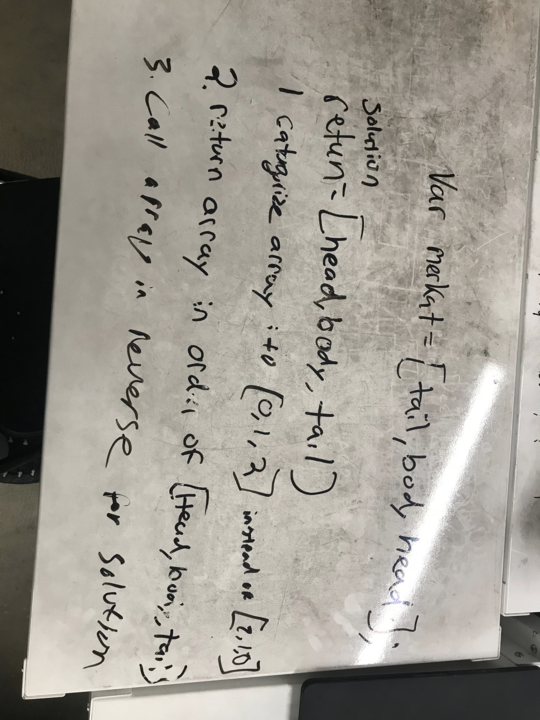 Var merkat = [tail, body, head];
Solution
retun = [head, body, tail]
1 categorize array into [0,1,2] instead of [2,1,0]
2. return array in order of [Head, body, tail]
3. Call arrays in reverse for solution